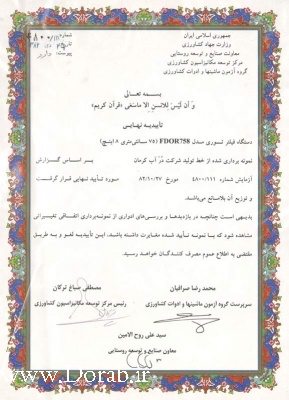 جمهوری اسلامی ایران
وزارت جهاد کشاورزی
معاونت صنایع و توسعه روستایی
مرکز توسعه مکانیزاسیون کشاورزی
گروه آزمون ماشینها و ادوات کشاورزی
شماره
تاریخ
پیوست: دارد
بسمه تعالی
و أن لیس للانسن الا ماسعی «قرآن کریم»
تأییدیه نهایی
دستگاه فیلتر توری مدل FDOR758 (۷۵ سانتی‌متری ۸ اینچ)
نمونه برداری شده از خط تولید شرکت در آب کرمان بر اساس گزارش
آزمایش شماره ۴۸۰۰/۱۱۱ مورخ ۸۲/۱۰/۲۷ مورد تأیید نهایی قرار گرفت
و توزیع آن بلامانع می‌باشد.
بدیهی است چنانچه در بازدیدها و بررسی‌های ادواری از نمونه‌برداری اتفاقی تغییراتی
مشاهده شود که با نمونه تأیید شده مغایرت داشته باشد، این تأییدیه لغو و به طریق
مقتضی به اطلاع عموم مصرف کنندگان خواهد رسید.
محمد رضا صرافیان
سرپرست گروه آزمون ماشینها و ادوات کشاورزی
مصطفی صباغ ترکان
رئیس مرکز توسعه مکانیزاسیون کشاورزی
سید علی روح الامین
معاون صنایع و توسعه روستایی
www.Dorab.ir